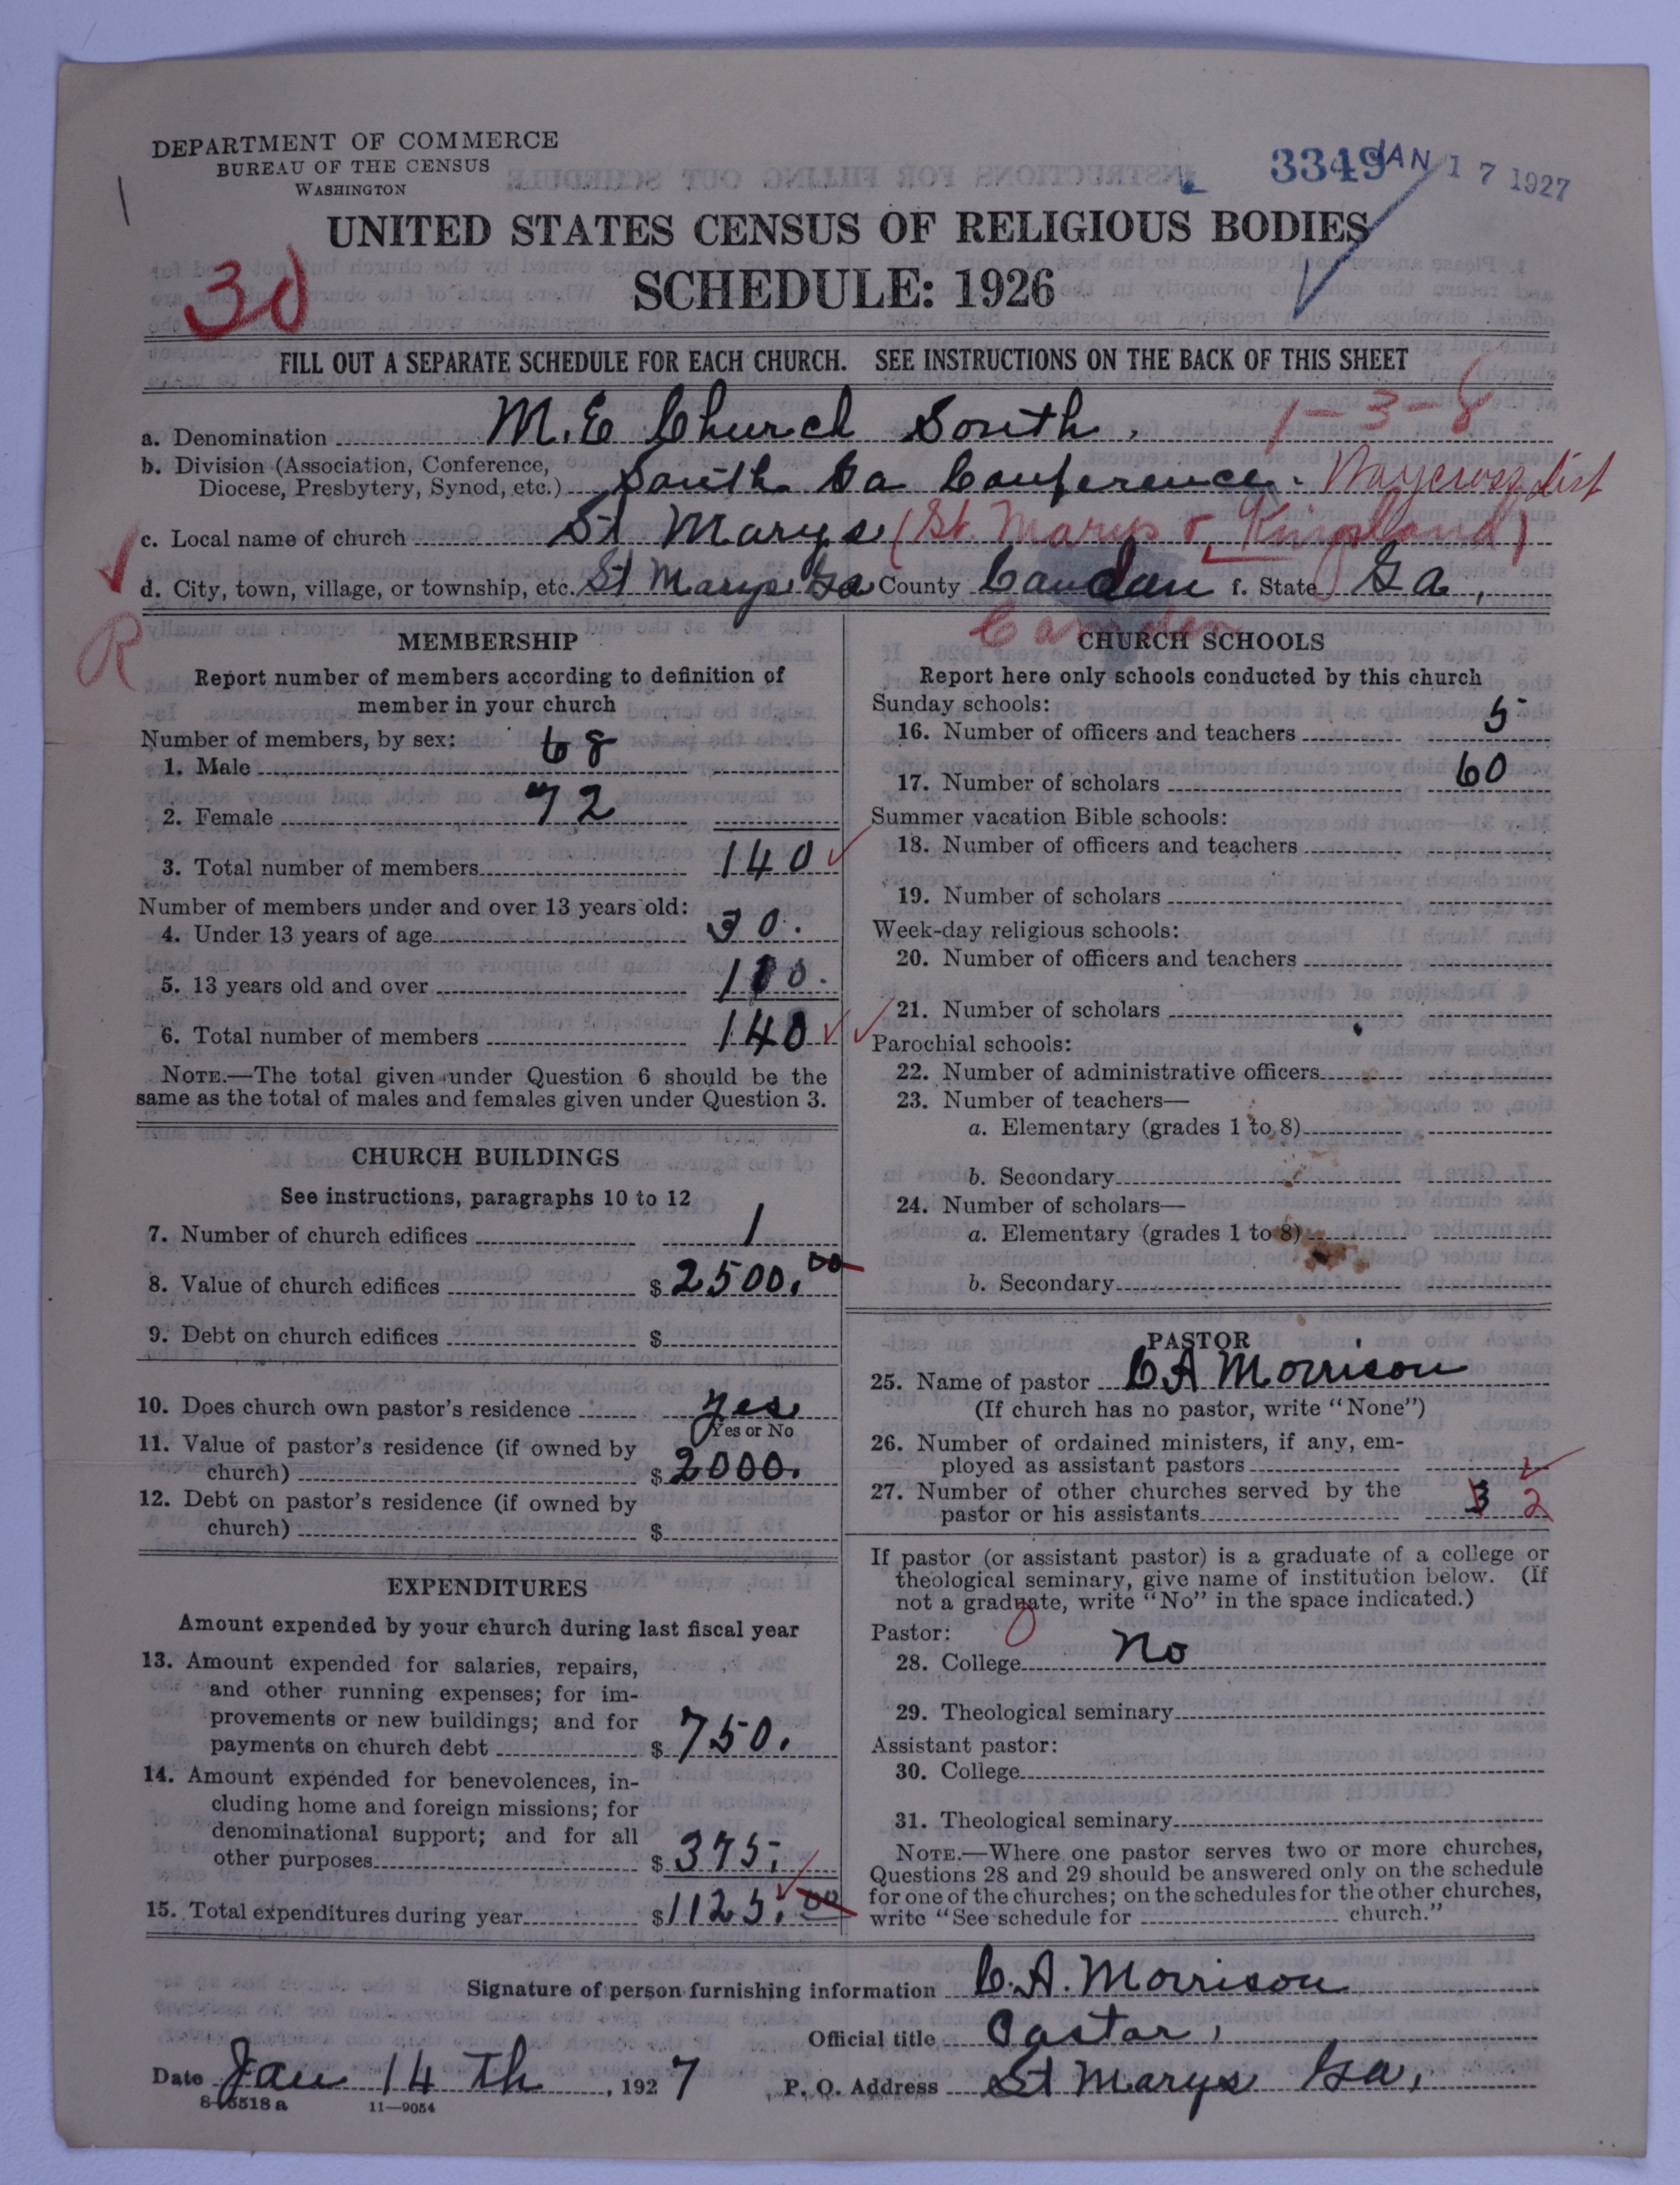 DEPARTMENT OF COMMERCE
BUREAU OF THE CENSUS
WASHINGTON
3349 JAN 17 1927
UNITED STATES CENSUS OF RELIGIOUS BODIES
30
SCHEDULE: 1926
FILL OUT A SEPARATE SCHEDULE FOR EACH CHURCH. SEE INSTRUCTIONS ON THE BACK OF THIS SHEET
a. Denomination M.E Church South. 1-3-8
b. Division (Association, Conference,
Diocese, Presbytery, Synod, etc.) South Ga Conference. Waycross dist
c. Local name of church St Marys (St. Marys & Kingsland)
d. City, town, village, or township, etc. St Marys Ga County Camden f. State Ga,
Camden
R
MEMBERSHIP
Report number of members according to definition of
member in your church
Number of members, by sex:
1. Male 68
2. Female 72
3. Total number of members 140
Number of members under and over 13 years old:
4. Under 13 years of age 30.
5. 13 years old and over 110.
6. Total number of members 140
NOTE.—The total given under Question 6 should be the
same as the total of males and females given under Question 3.
CHURCH BUILDINGS
See instructions, paragraphs 10 to 12
7. Number of church edifices 1
8. Value of church edifices $ 2500.00
9. Debt on church edifices $
10. Does church own pastor's residence yes
Yes or No
11. Value of pastor's residence (if owned by
church) $ 2000.
12. Debt on pastor's residence (if owned by
church) $
EXPENDITURES
Amount expended by your church during last fiscal year
13. Amount expended for salaries, repairs,
and other running expenses; for im-
provements or new buildings; and for
payments on church debt $ 750.
14. Amount expended for benevolences, in-
cluding home and foreign missions; for
denominational support; and for all
other purposes $ 375.
15. Total expenditures during year $ 1125.00
CHURCH SCHOOLS
Report here only schools conducted by this church
Sunday schools:
16. Number of officers and teachers 5
17. Number of scholars 60
Summer vacation Bible schools:
18. Number of officers and teachers
19. Number of scholars
Week-day religious schools:
20. Number of officers and teachers
21. Number of scholars
Parochial schools:
22. Number of administrative officers
23. Number of teachers—
a. Elementary (grades 1 to 8)
b. Secondary
24. Number of scholars—
a. Elementary (grades 1 to 8)
b. Secondary
PASTOR
25. Name of pastor C A Morrison
(If church has no pastor, write "None")
26. Number of ordained ministers, if any, em-
ployed as assistant pastors
27. Number of other churches served by the
pastor or his assistants 3 2
If pastor (or assistant pastor) is a graduate of a college or
theological seminary, give name of institution below. (If
not a graduate, write "No" in the space indicated.)
Pastor:
28. College No
29. Theological seminary
Assistant pastor:
30. College
31. Theological seminary
NOTE.—Where one pastor serves two or more churches,
Questions 28 and 29 should be answered only on the schedule
for one of the churches; on the schedules for the other churches,
write "See schedule for church."
Signature of person furnishing information C. A. Morrison
Official title Pastor,
Date Jan 14 Th, 1927 P. O. Address St Marys Ga,
8-5518 a 11—9054